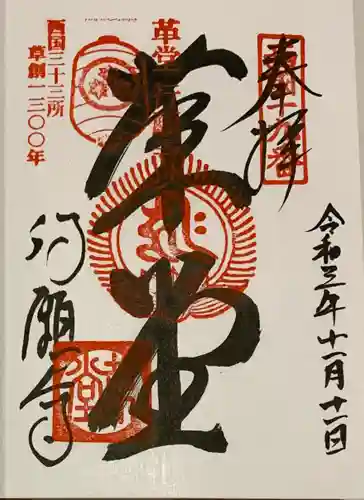 奉拝
西国十九番
令和三年十一月十一日
革堂
革堂
行願寺
西国三十三所
草創一三〇〇年